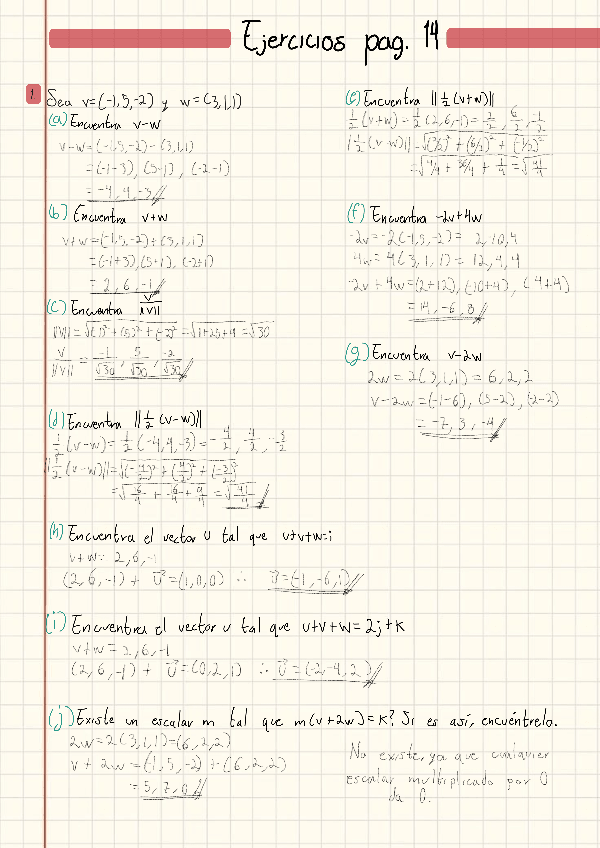 Ejercicios pag. 14
1. Sea v=(-1,5,-2) y w=(3,1,1)
(a) Encuentra v-w
v-w=(-1,5,-2)-(3,1,1)
=(-1-3), (5-1), (-2-1)
=-4,4,-3//
(b) Encuentra v+w
v+w=(-1,5,-2)+(3,1,1)
=(-1+3),(5+1), (-2+1)
=2,6,-1//
(c) Encuentra v/||v||
||v||=√(-1)²+(5)²+(-2)²=√1+25+4=√30
v/||v||=-1/√30, 5/√30, -2/√30//
(d) Encuentra ||½(v-w)||
½(v-w)=½(-4,4,-3)=-4/2, 4/2, -3/2
||½(v-w)||=√(-4/2)²+(4/2)²+(-3/2)²
=√16/4+16/4+9/4=√41/4//
(e) Encuentra ||½(v+w)||
½(v+w)=½(2,6,-1)=2/2, 6/2, -1/2
||½(v-w)||=√(2/2)²+(6/2)²+(-1/2)²
=√4/4+36/4+1/4=√41/4
(f) Encuentra -2v+4w
-2v=-2(-1,5,-2)= 2,-10,4
4w=4(3,1,1)=12,4,4
-2v+4w=(2+12),(-10+4), (4+4)
=14,-6,8//
(g) Encuentra v-2w
2w=2(3,1,1)=6,2,2
v-2w=(-1-6), (5-2), (-2-2)
=-7,3,-4//
(h) Encuentra el vector u tal que u+v+w=i
v+w= 2,6,-1
(2,6,-1)+ U=(1,0,0) ∴ U=(-1,-6,1)//
(i) Encuentra el vector u tal que u+v+w=2j+k
v+w=2,6,-1
(2,6,-1)+ U=(0,2,1) ∴ U=(-2-4,2)//
(j) Existe un escalar m tal que m(v+2w)=k? Si es así, encuéntrelo.
2w=2(3,1,1)=(6,2,2)
v+2w=(-1,5,-2)+(6,2,2)
=5,7,0//
No existe, ya que cualquier
escalar multiplicado por 0
da 0.